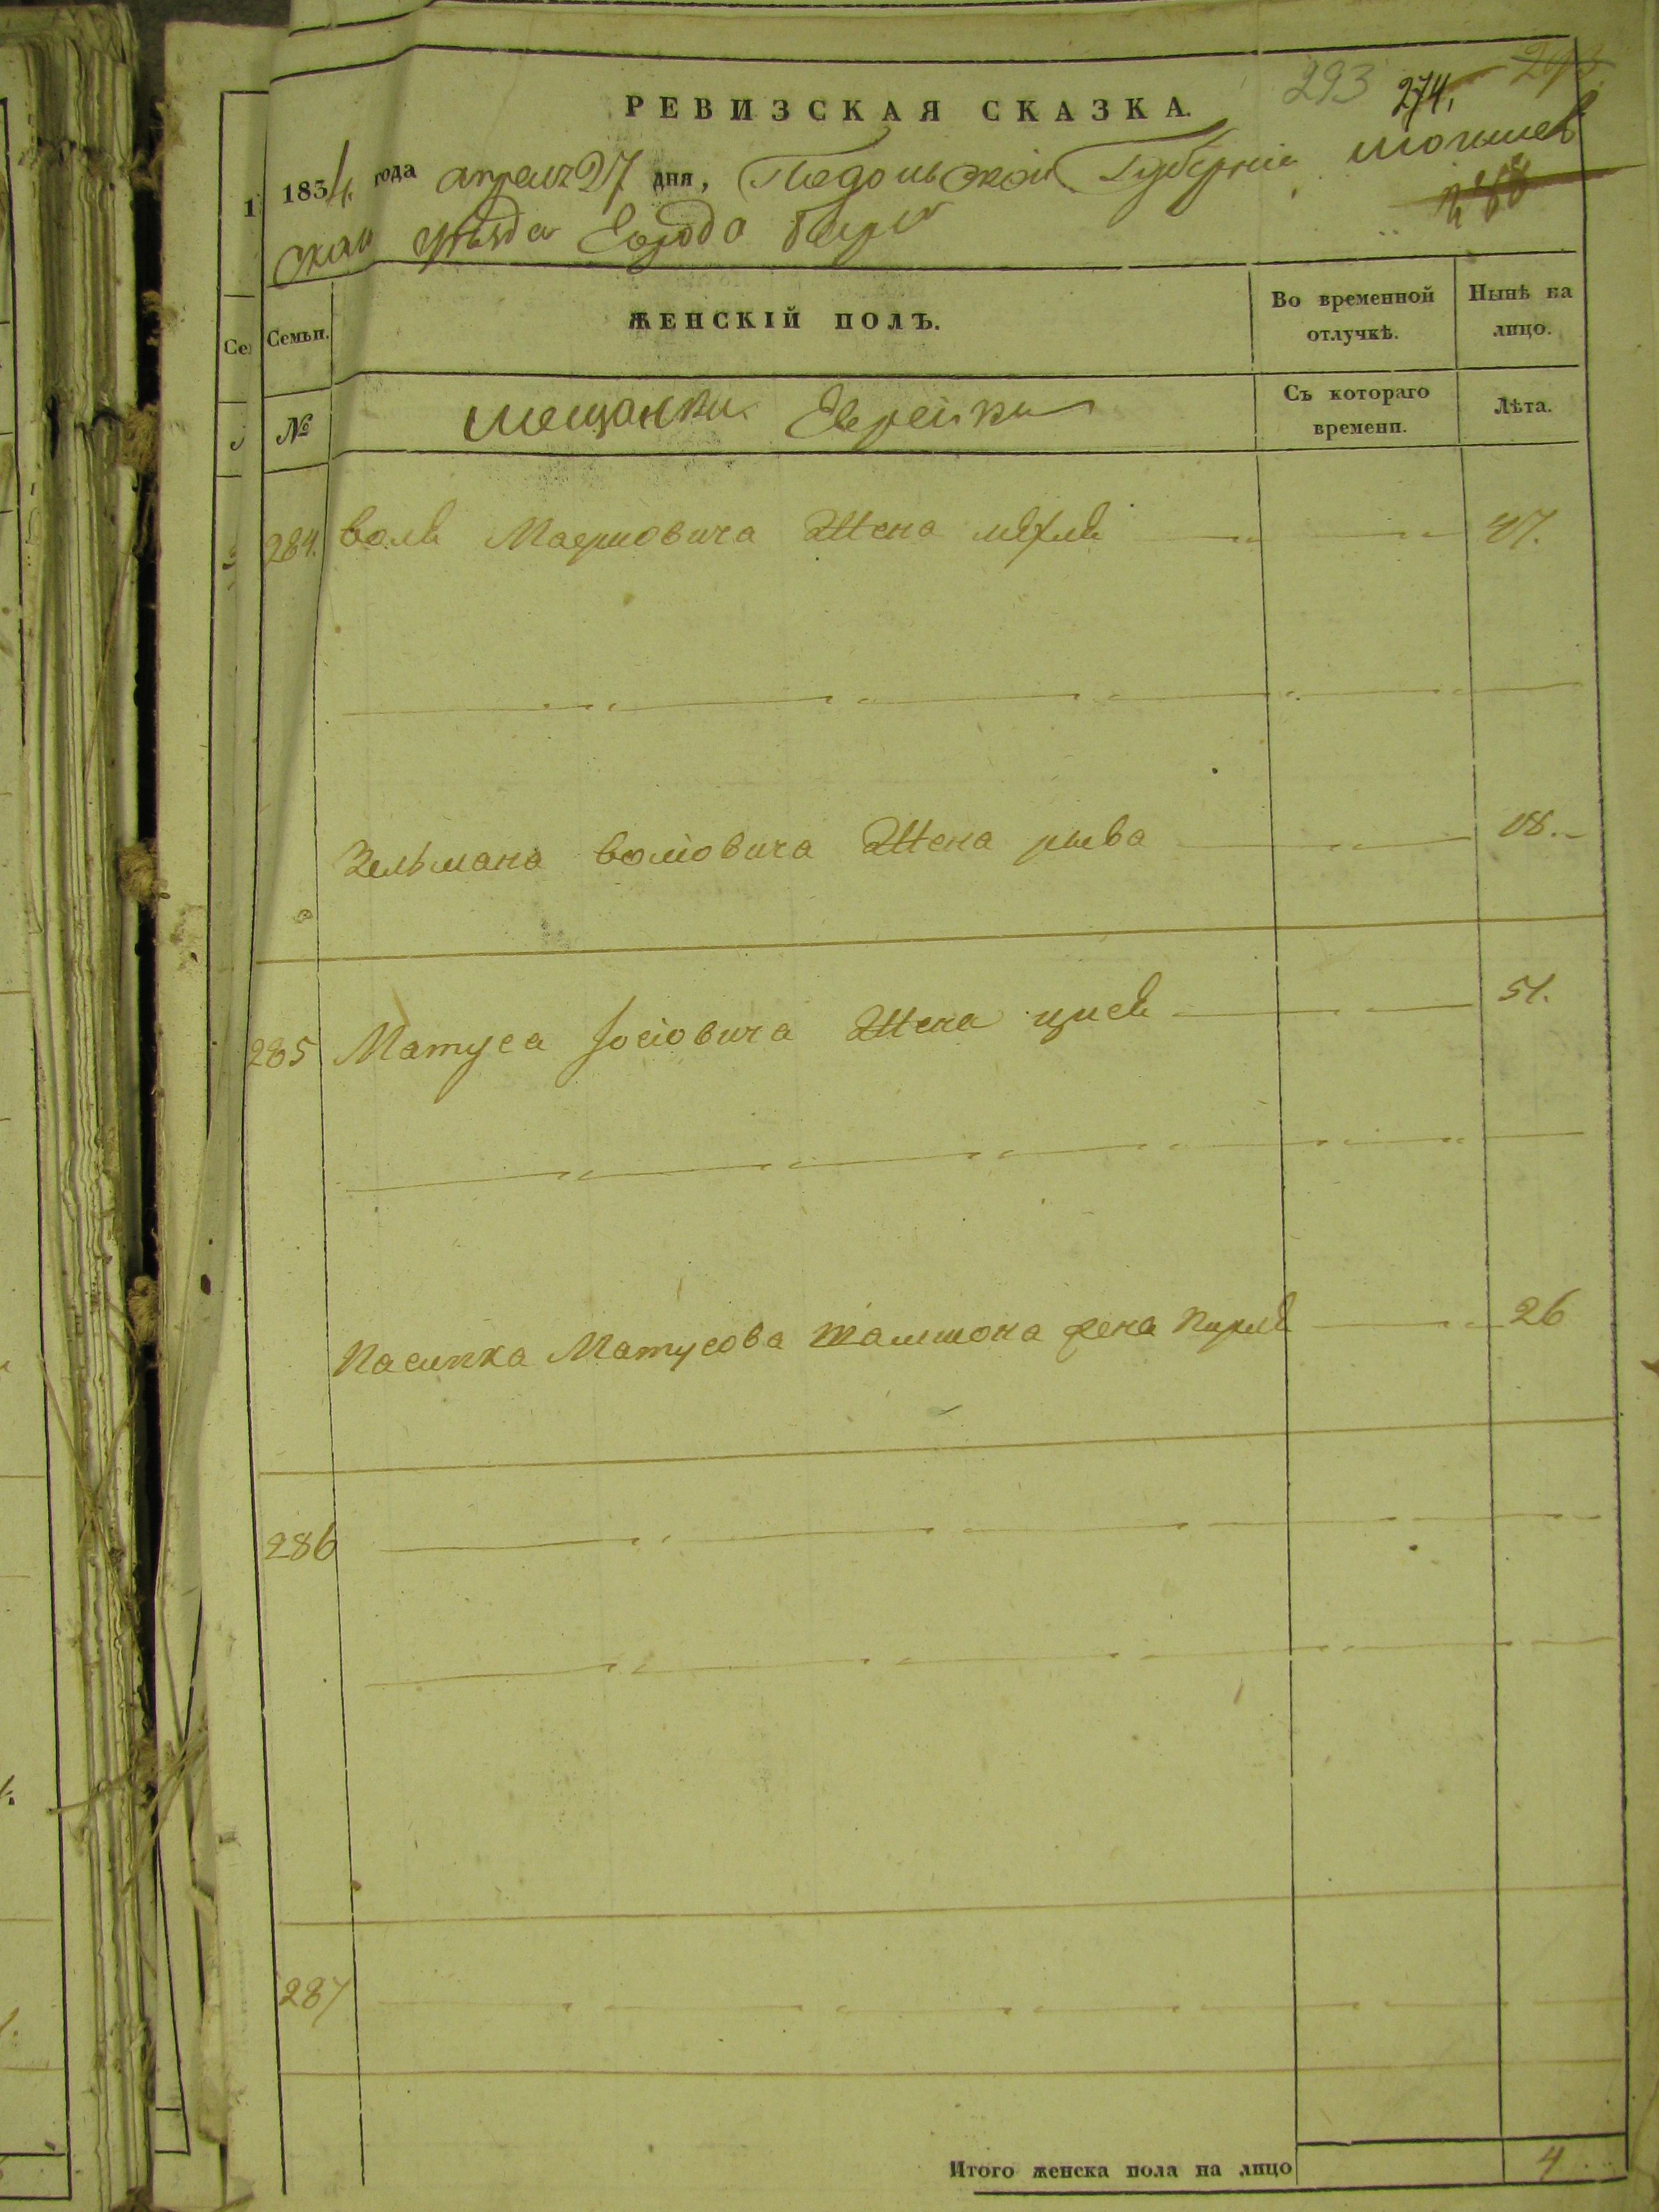 293 274.
РЕВИЗСКАЯ СКАЗКА.
1834 года апреля 27 дня, Подольской Губерніи Могилев
ской уѣзда Города Бара
Семьи. ЖЕНСКІЙ ПОЛЪ. Во временной отлучкѣ. Нынѣ на лицо.
№ мещанки Еврейки Съ котораго времени. Лѣта.
284. Волѣ Маеровича Жена 47.
Зельмана Волѣовича Жена рыва 18.
285 Матуса Іосіовича Жена 51.
Пасинка Матусова Шамшона жена Пирлѣ 26
286
287
Итого женска пола на лицо 4